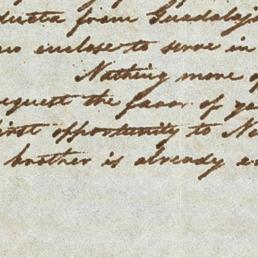 ducta from Guadalaja
enclose to serve in
Nothing more o
request the favor of
first opportunity to Ne
brother is already